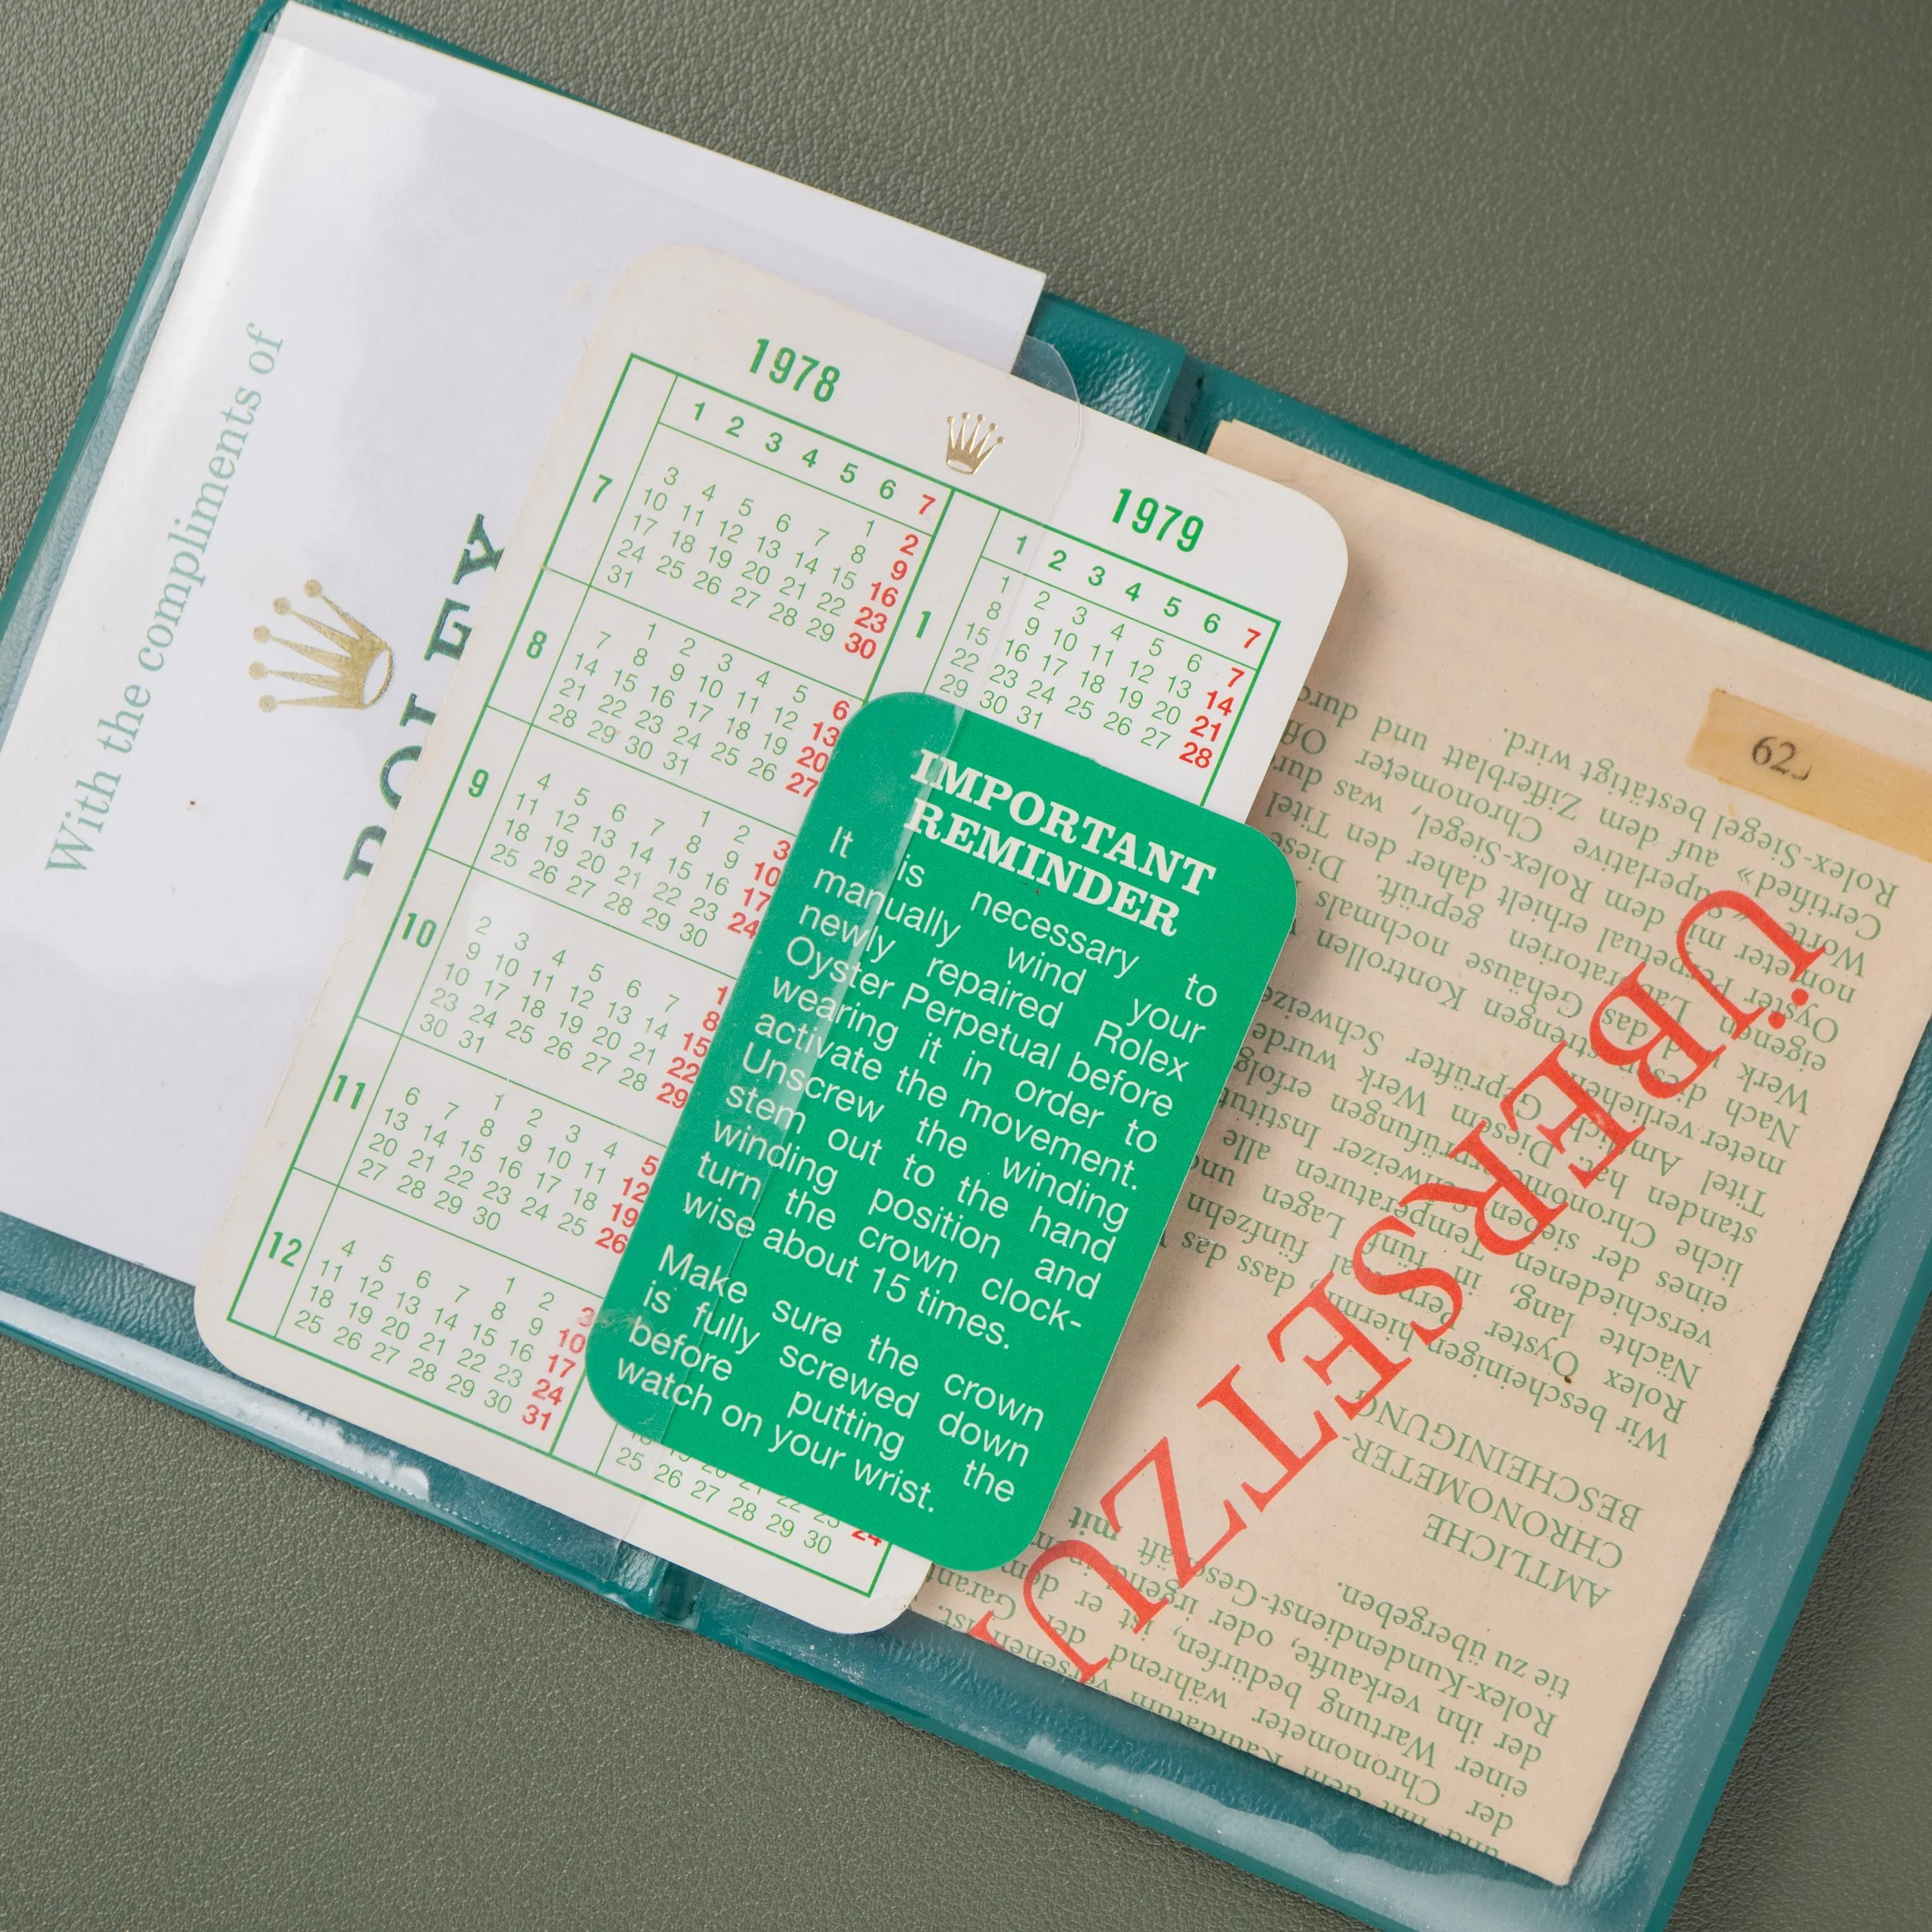 With the compliments of
1978
1 2 3 4 5 6 7
7
1 2
3 4 5 6 7 8 9
10 11 12 13 14 15 16
17 18 19 20 21 22 23
24 25 26 27 28 29 30
31
8
1 2 3 4 5 6
7 8 9 10 11 12 13
14 15 16 17 18 19 20
21 22 23 24 25 26 27
28 29 30 31
9
1 2 3
4 5 6 7 8 9 10
11 12 13 14 15 16 17
18 19 20 21 22 23 24
25 26 27 28 29 30
10
1
2 3 4 5 6 7 8
9 10 11 12 13 14 15
16 17 18 19 20 21 22
23 24 25 26 27 28 29
30 31
11
1 2 3 4 5
6 7 8 9 10 11 12
13 14 15 16 17 18 19
20 21 22 23 24 25 26
27 28 29 30
12
1 2 3
4 5 6 7 8 9 10
11 12 13 14 15 16 17
18 19 20 21 22 23 24
25 26 27 28 29 30 31
1979
1 2 3 4 5 6 7
1
1 2 3 4 5 6 7
8 9 10 11 12 13 14
15 16 17 18 19 20 21
22 23 24 25 26 27 28
29 30 31
24
25 26 27 28 29 30
IMPORTANT
REMINDER
It is necessary to
manually wind your
newly repaired Rolex
Oyster Perpetual before
wearing it in order to
activate the movement.
Unscrew the winding
stem out to the hand
winding position and
turn the crown clock-
wise about 15 times.
Make sure the crown
is fully screwed down
before putting the
watch on your wrist.
und mit dem Kaufdatum versehen ist.
der Chronometer während der
einer Wartung bedürfen, ist er dem
der ihn verkaufte, oder
Rolex-Kundendienst-Geschäft mit
tie zu übergeben.
AMTLICHE
CHRONOMETER-
BESCHEINIGUNG
Wir bescheinigen hiermit, dass das
Rolex Oyster fünfzehn
Nächte lang, in fünf Lagen und
verschiedenen Temperaturen alle
eines der sieben
liche
standen hat. Diesem Werk wurde
Titel Amtlich Geprüfter Schweizer
meter verliehen.
Nach strengen Kontrollen
Werk das Gehäuse nochmals
eigenen geprüft. Diese
Oyster Perpetual erhielt daher den Titel
nometer mit dem Rolex-Siegel, was durch
Worte «Superlative Chronometer
Certified» auf dem Zifferblatt und durch
Rolex-Siegel bestätigt wird.
ÜBERSETZU